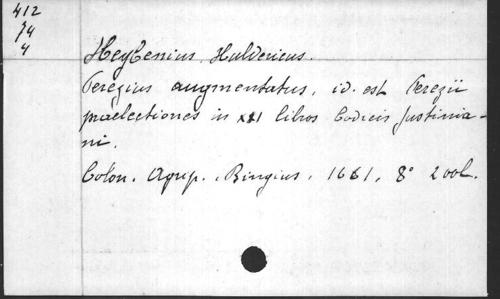 412
74
4
Heybenius, Huldericus.
Perezius augmentatus, id. est Perezii
praelectiones in XII libros Codicis Justinia-
ni.
Colon. Agrip. Bingius, 1661, 8° 2 vol.